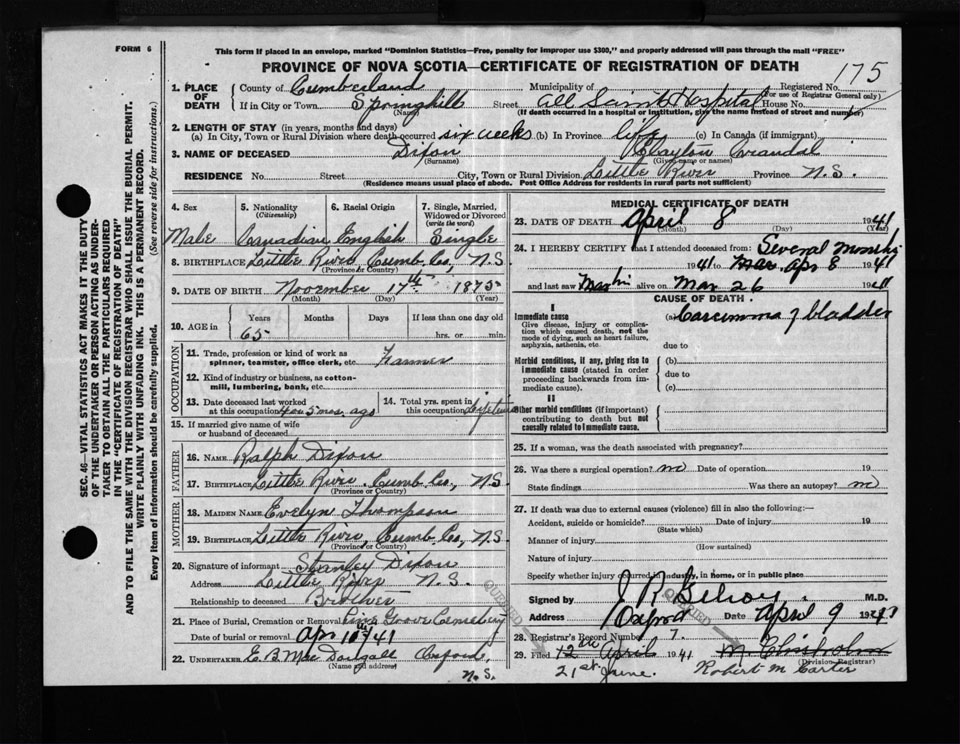 FORM 6
This form if placed in an envelope, marked "Dominion Statistics—Free, penalty for improper use $300," and properly addressed will pass through the mail "FREE"
PROVINCE OF NOVA SCOTIA—CERTIFICATE OF REGISTRATION OF DEATH
175
1. PLACE OF DEATH
County of Cumberland Municipality of Registered No.
(For use of Registrar General only)
If in City or Town Springhill Street All Saints Hospital House No.
(Name) (If death occurred in a hospital or institution, give the name instead of street and number)
2. LENGTH OF STAY (in years, months and days)
(a) In City, Town or Rural Division where death occurred six weeks (b) In Province life (c) In Canada (if immigrant)
3. NAME OF DECEASED Dixon Clayton Crandal
(Surname) (Given name or names)
RESIDENCE No. Street City, Town or Rural Division Little River Province N.S.
(Residence means usual place of abode. Post Office Address for residents in rural parts not sufficient)
4. Sex Male
5. Nationality (Citizenship) Canadian
6. Racial Origin English
7. Single, Married, Widowed or Divorced (write the word) Single
8. BIRTHPLACE Little River Cumb. Co., N.S.
(Province or Country)
9. DATE OF BIRTH November 17th 1875
(Month) (Day) (Year)
10. AGE in Years Months Days If less than one day old
65 hrs. or min.
OCCUPATION
11. Trade, profession or kind of work as spinner, teamster, office clerk, etc. Farmer
12. Kind of industry or business, as cotton-mill, lumbering, bank, etc.
13. Date deceased last worked at this occupation 4 or 5 mos. ago
14. Total yrs. spent in this occupation Lifetime
15. If married give name of wife or husband of deceased
FATHER
16. NAME Ralph Dixon
17. BIRTHPLACE Little River Cumb. Co., N.S.
(Province or Country)
MOTHER
18. MAIDEN NAME Evelyn Thompson
19. BIRTHPLACE Little River, Cumb. Co., N.S.
(Province or Country)
20. Signature of informant Stanley Dixon
Address Little River N.S.
Relationship to deceased Brother
21. Place of Burial, Cremation or Removal Pine Grove Cemetery
Date of burial or removal Apr 10th 41
22. UNDERTAKER E. B. MacDougall Oxford,
(Name and address) N.S.
MEDICAL CERTIFICATE OF DEATH
23. DATE OF DEATH April 8 1941
(Month) (Day) (Year)
24. I HEREBY CERTIFY that I attended deceased from: Several months
1941 to Apr 8 1941
and last saw alive on Mar 26 1941
CAUSE OF DEATH
I
Immediate cause
Give disease, injury or complication which caused death, not the mode of dying, such as heart failure, asphyxia, asthenia, etc.
(a) Carcinoma of bladder
due to
Morbid conditions, if any, giving rise to immediate cause (stated in order proceeding backwards from immediate cause).
(b)
due to
(c)
II
Other morbid conditions (if important) contributing to death but not causally related to immediate cause.
25. If a woman, was the death associated with pregnancy?
26. Was there a surgical operation? no Date of operation 19
State findings Was there an autopsy? no
27. If death was due to external causes (violence) fill in also the following:—
Accident, suicide or homicide? Date of injury 19
(State which)
Manner of injury
(How sustained)
Nature of injury
Specify whether injury occurred in industry, in home, or in public place
Signed by J R Gilroy M.D.
Address Oxford Date April 9 1941
QUERIED QUERIED
28. Registrar's Record Number 7.
29. Filed 12th April 1941 M. Chisholm
(Division Registrar)
21st June. Robert M Carter
SEC. 46—VITAL STATISTICS ACT MAKES IT THE DUTY
OF THE UNDERTAKER OR PERSON ACTING AS UNDER-
TAKER TO OBTAIN ALL THE PARTICULARS REQUIRED
IN THE "CERTIFICATE OF REGISTRATION OF DEATH"
AND TO FILE THE SAME WITH THE DIVISION REGISTRAR WHO SHALL ISSUE THE BURIAL PERMIT.
WRITE PLAINLY WITH UNFADING INK. THIS IS A PERMANENT RECORD.
Every item of information should be carefully supplied. (See reverse side for instructions.)